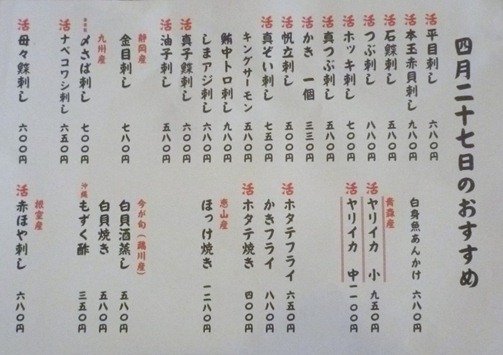 四月二十七日のおすすめ
活 平目刺し 六八〇円
活 本玉赤貝刺し 九八〇円
活 石鰈刺し 五八〇円
活 つぶ刺し 八八〇円
活 ホッキ刺し 七〇〇円
活 真つぶ刺し 五八〇円
活 かき 一個 三三〇円
活 帆立刺し 五〇〇円
活 真ぞい刺し 六七〇円
キングサーモン 五八〇円
鮪中トロ刺し 九八〇円
しまアジ刺し 六八〇円
活 真子鰈刺し 六八〇円
活 油子刺し 五八〇円
静岡産
金目刺し 七八〇円
九州産
〆さば刺し 七〇〇円
活 ナベコワシ刺し 六五〇円
活 母々鰈刺し 六〇〇円
白身魚あんかけ 六八〇円
青森産
活 ヤリイカ 小 九五〇円
活 ヤリイカ 中 一一〇〇円
活 ホタテフライ 六五〇円
活 かきフライ 八八〇円
活 ホタテ焼き 四〇〇円
恵山産
ほっけ焼き 一二八〇円
今が旬(鵡川産)
白貝酒蒸し 五八〇円
白貝焼き 五八〇円
沖縄 もずく酢 三五〇円
根室産
活 赤ほや刺し 六八〇円